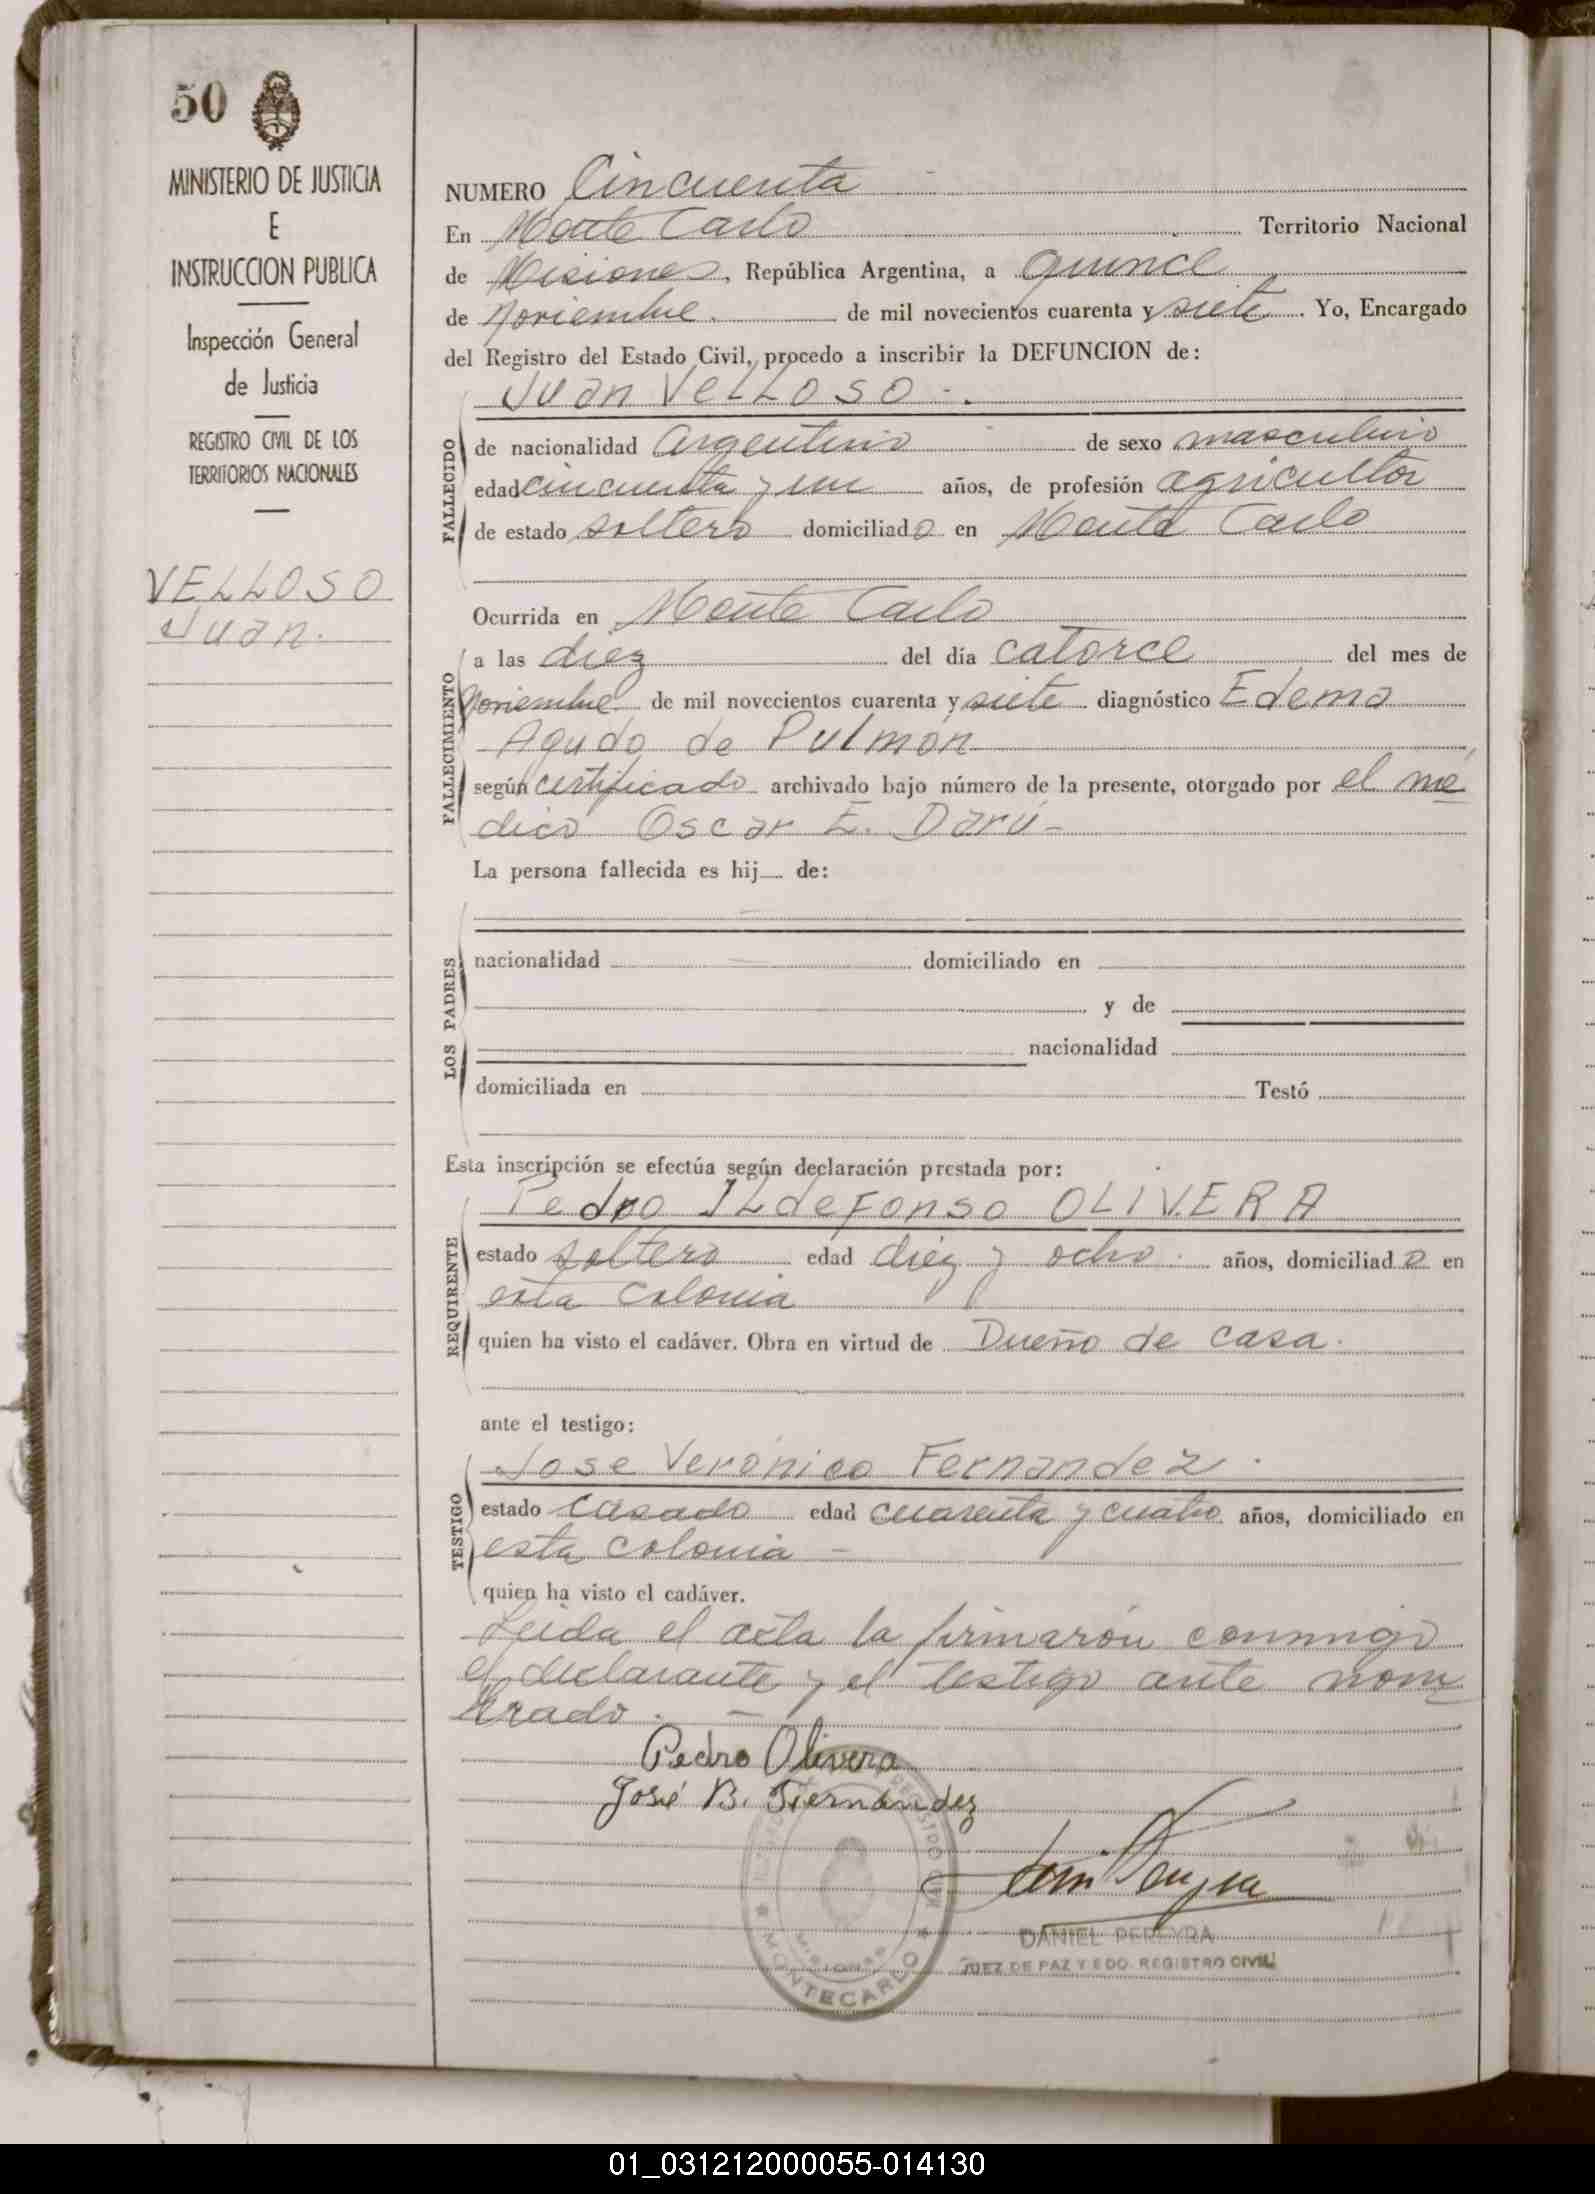 50
MINISTERIO DE JUSTICIA
E
INSTRUCCION PUBLICA
Inspección General
de Justicia
REGISTRO CIVIL DE LOS
TERRITORIOS NACIONALES
VELLOSO
Juan.
NUMERO Cincuenta
En Monte Carlo Territorio Nacional
de Misiones, República Argentina, a quince
de Noviembre. de mil novecientos cuarenta y siete. Yo, Encargado
del Registro del Estado Civil, procedo a inscribir la DEFUNCION de:
Juan VELLOSO -.
FALLECIDO
de nacionalidad Argentino de sexo masculino
edad cincuenta y un años, de profesión agricultor
de estado soltero domiciliado en Monte Carlo
Ocurrida en Monte Carlo
FALLECIMIENTO
a las diez del día catorce del mes de
Noviembre de mil novecientos cuarenta y siete diagnóstico Edema
Agudo de Pulmón
según certificado archivado bajo número de la presente, otorgado por el mé
dico Oscar E. Darú -
La persona fallecida es hij de:
LOS PADRES
nacionalidad domiciliado en
y de
nacionalidad
domiciliada en Testó
Esta inscripción se efectúa según declaración prestada por:
Pedro ILdeFonso OLIVERA
REQUIRENTE
estado soltero edad diez y ocho. años, domiciliado en
esta Colonia
quien ha visto el cadáver. Obra en virtud de Dueño de casa.
ante el testigo:
Jose Verónico Fernandez.
TESTIGO
estado casado edad cuarenta y cuatro años, domiciliado en
esta Colonia -
quien ha visto el cadáver.
Leida el acta la firmarón conmigo
el declarante y el testigo ante nom
brado. -
Pedro Olivera
José B. Fernández
MISIONES
MONTECARLO
DANIEL PEREYRA
JUEZ DE PAZ Y EDO. REGISTRO CIVIL
01_031212000055-014130